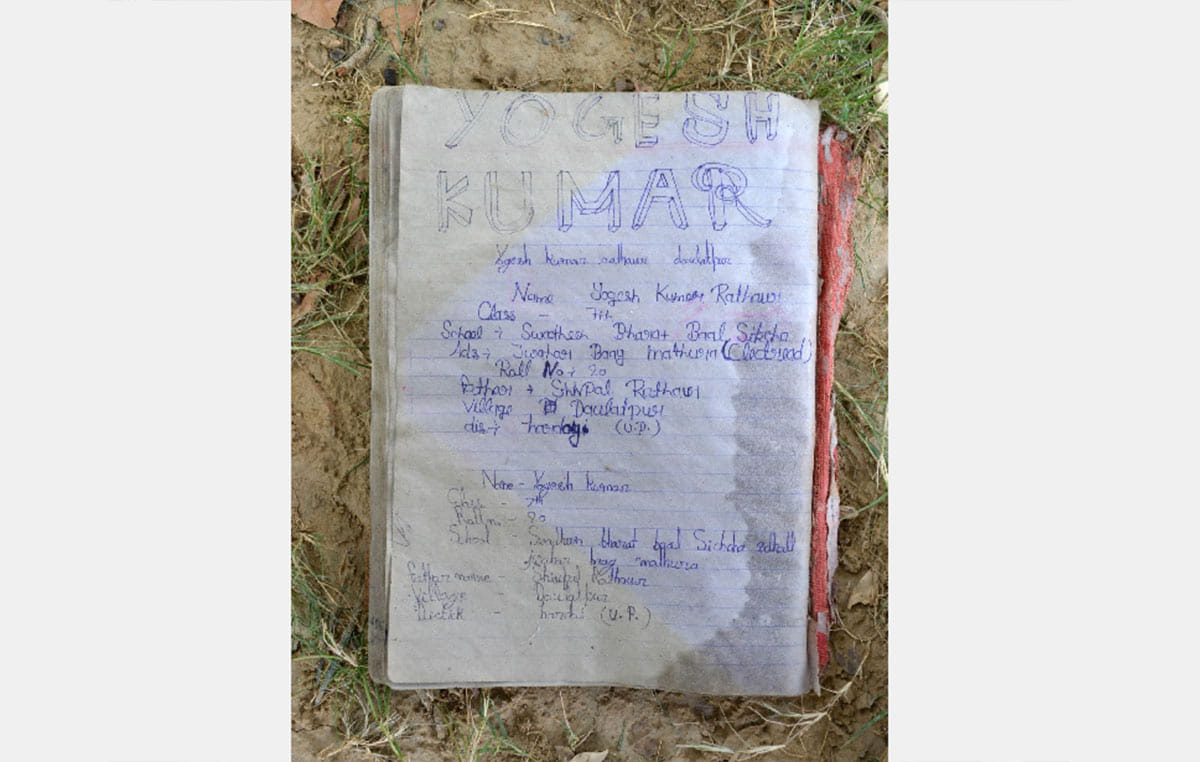 YOGESH
KUMAR
Yogesh Kumar rathaur daulatpur
Name Yogesh Kumar Rathaur
Class - 7th
School → Swathesh Bharat Baal Sikcha
Ads → Jwahar Baag mathura (Clectread)
Roll No → 20
Fathar → ShivPal Rathaur
Village Daulatpur
dis → hardoyi (U.P.)
Name - Yogesh Kumar
Class - 7th
Rall no - 20
School - bharat baal Sichcha
Jwahar bag mathura
Fathar name - Shivpal Rathaur
Village - Daulatpur
- (U.P.)